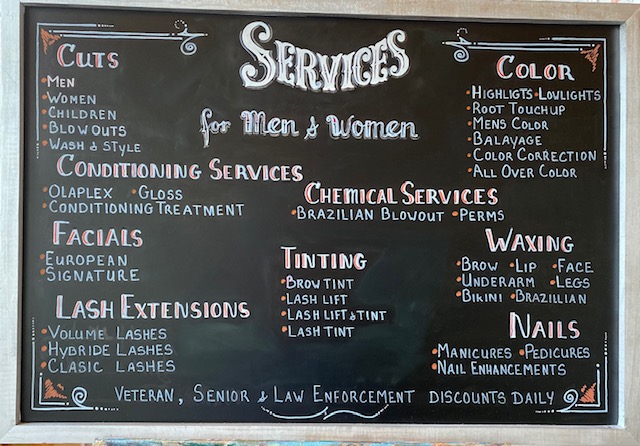 SERVICES
for Men & Women
CUTS
•MEN
•WOMEN
•CHILDREN
•BLOW OUTS
•WASH & STYLE
COLOR
•HIGHLIGTS•LOWLIGHTS
•ROOT TOUCHUP
•MENS COLOR
•BALAYAGE
•COLOR CORRECTION
•ALL OVER COLOR
CONDITIONING SERVICES
•OLAPLEX •GLOSS
•CONDITIONING TREATMENT
CHEMICAL SERVICES
•BRAZILIAN BLOWOUT •PERMS
FACIALS
•EUROPEAN
•SIGNATURE
TINTING
•BROW TINT
•LASH LIFT
•LASH LIFT & TINT
•LASH TINT
WAXING
•BROW •LIP •FACE
•UNDERARM •LEGS
•BIKINI •BRAZILLIAN
LASH EXTENSIONS
•VOLUME LASHES
•HYBRIDE LASHES
•CLASIC LASHES
NAILS
•MANICURES •PEDICURES
•NAIL ENHANCEMENTS
VETERAN, SENIOR & LAW ENFORCEMENT DISCOUNTS DAILY